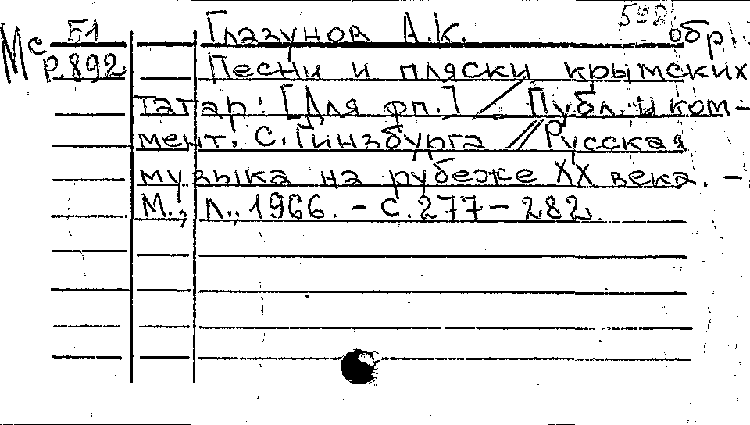 598
Мс 51 Глазунов А.К. обр.
Р892 Песни и пляски крымских
татар: [Для фп.] / Публ. и ком-
мент. С. Гинзбурга // Русская
музыка на рубеже XX века. -
М., Л., 1966. - С. 277-282.